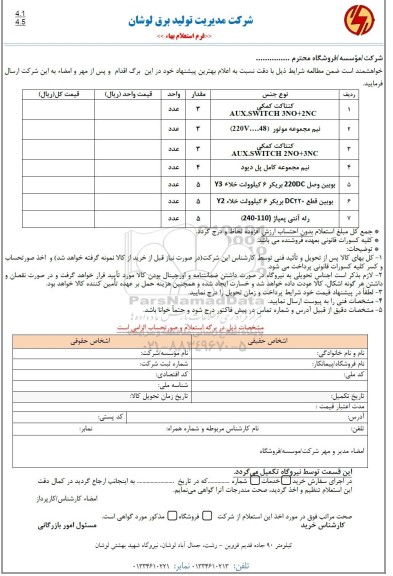 4.1
4.5
شرکت مدیریت تولید برق لوشان
<<فرم استعلام بهاء>>
شرکت/مؤسسه/فروشگاه محترم ................
خواهشمند است ضمن مطالعه شرایط ذیل با دقت نسبت به اعلام بهترین پیشنهاد خود در این برگ اقدام و پس از مهر و امضاء به این شرکت ارسال
فرمایید.
ردیف نوع جنس مقدار واحد قیمت واحد (ریال) قیمت کل(ریال)
۱ کنتاکت کمکی AUX.SWITCH 3NO+2NC ۳ عدد
۲ نیم مجموعه موتور (48....220V) ۳ عدد
۳ کنتاکت کمکی AUX.SWITCH 2NO+3NC ۳ عدد
۴ نیم مجموعه کامل پل دیود ۴ عدد
۵ بوبین وصل 220DC بریکر ۶ کیلوولت خلاء Y3 ۵ عدد
۶ بوبین قطع DC۲۲۰ بریکر ۶ کیلوولت خلاء Y2 ۵ عدد
۷ رله آنتی پمپاژ (110-240) ۵ عدد
* جمع کل مبلغ استعلام بدون احتساب ارزش افزوده لحاظ و درج گردد.
* کلیه کسورات قانونی بعهده فروشنده می باشد.
۱- کل بهای کالا پس از تحویل و تأئید فنی توسط کارشناس این شرکت(در صورت نیاز قبل از خرید از کالا نمونه گرفته خواهد شد) و اخذ صورتحساب
و کسر کلیه کسورات قانونی پرداخت می شود.
۲- لازم بذکر است اجناس تحویلی به نیروگاه در صورت داشتن ضمانتنامه و اورجینال بودن کالا مورد تأیید قرار خواهد گرفت و در صورت نقصان و
داشتن هر گونه اشکال، کالا عودت داده خواهد شد و خسارت ایجاد شده و همچنین هزینه حمل بر عهده تأمین کننده کالا خواهد بود.
۳- لطفاً در پیشنهاد قیمت خود شرایط پرداخت و زمان تحویل را درج نمایید.
۴- مشخصات فنی را به پیوست ارسال نمایید.
۵- مشخصات دقیق از قبیل آدرس و شماره تماس در پیش فاکتور درج شود و حتماً خوانا باشد.
ParsNamadData
۰۲۱-۸۸۳۴۹۶۷۰-۵
مشخصات ذیل در برگه استعلام و صورتحساب الزامی است
اشخاص حقیقی اشخاص حقوقی
نام و نام خانوادگی: نام مؤسسه/شرکت:
نام فروشگاه/پیمانکار: شماره ثبت شرکت:
کد ملی: کد اقتصادی:
شناسه ملی:
تاریخ تکمیل: تاریخ زمان تحویل کالا:
مدت اعتبار قیمت :
آدرس: کد پستی:
تلفن: نام کارشناس مربوطه و شماره همراه: نمابر:
امضاء مدیر و مهر شرکت/موسسه/فروشگاه
این قسمت توسط نیروگاه تکمیل می‌گردد.
در اجرای سفارش خرید خدمات شماره ........ که در تاریخ ........ به اینجانب ارجاع گردید در کمال دقت
این استعلام تنظیم و اخذ گردید، صحت مندرجات آنرا گواهی می‌نمایم.
امضاء کارشناس/کارپرداز
صحت مراتب فوق در مورد اخذ این استعلام از شرکت فروشگاه مذکور مورد گواهی است.
کارشناس خرید مسئول امور بازرگانی
کیلومتر ۹۰ جاده قدیم قزوین – رشت، جمال آباد لوشان، نیروگاه شهید بهشتی لوشان
تلفن: ۰۱۳۳۴۶۱۰۲۱۳ نمابر: ۰۱۳۳۴۶۱۰۲۲۱